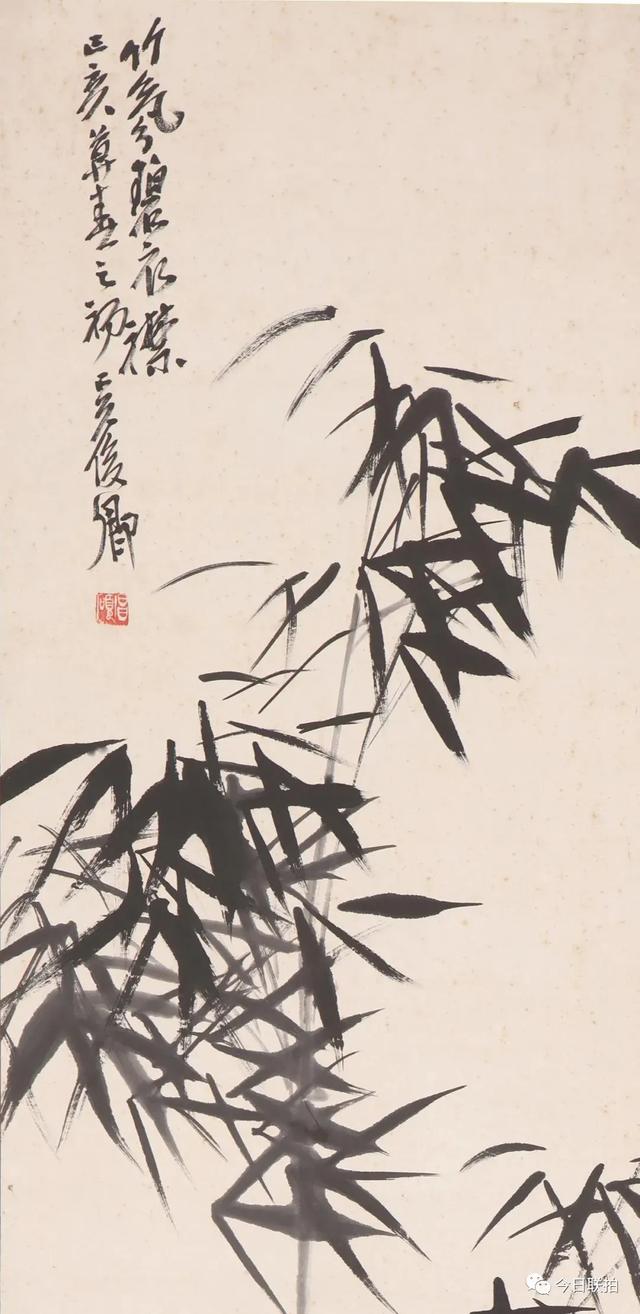 竹氛碧衣襟
己亥暮春之初吳俊卿
倉碩
今日联拍